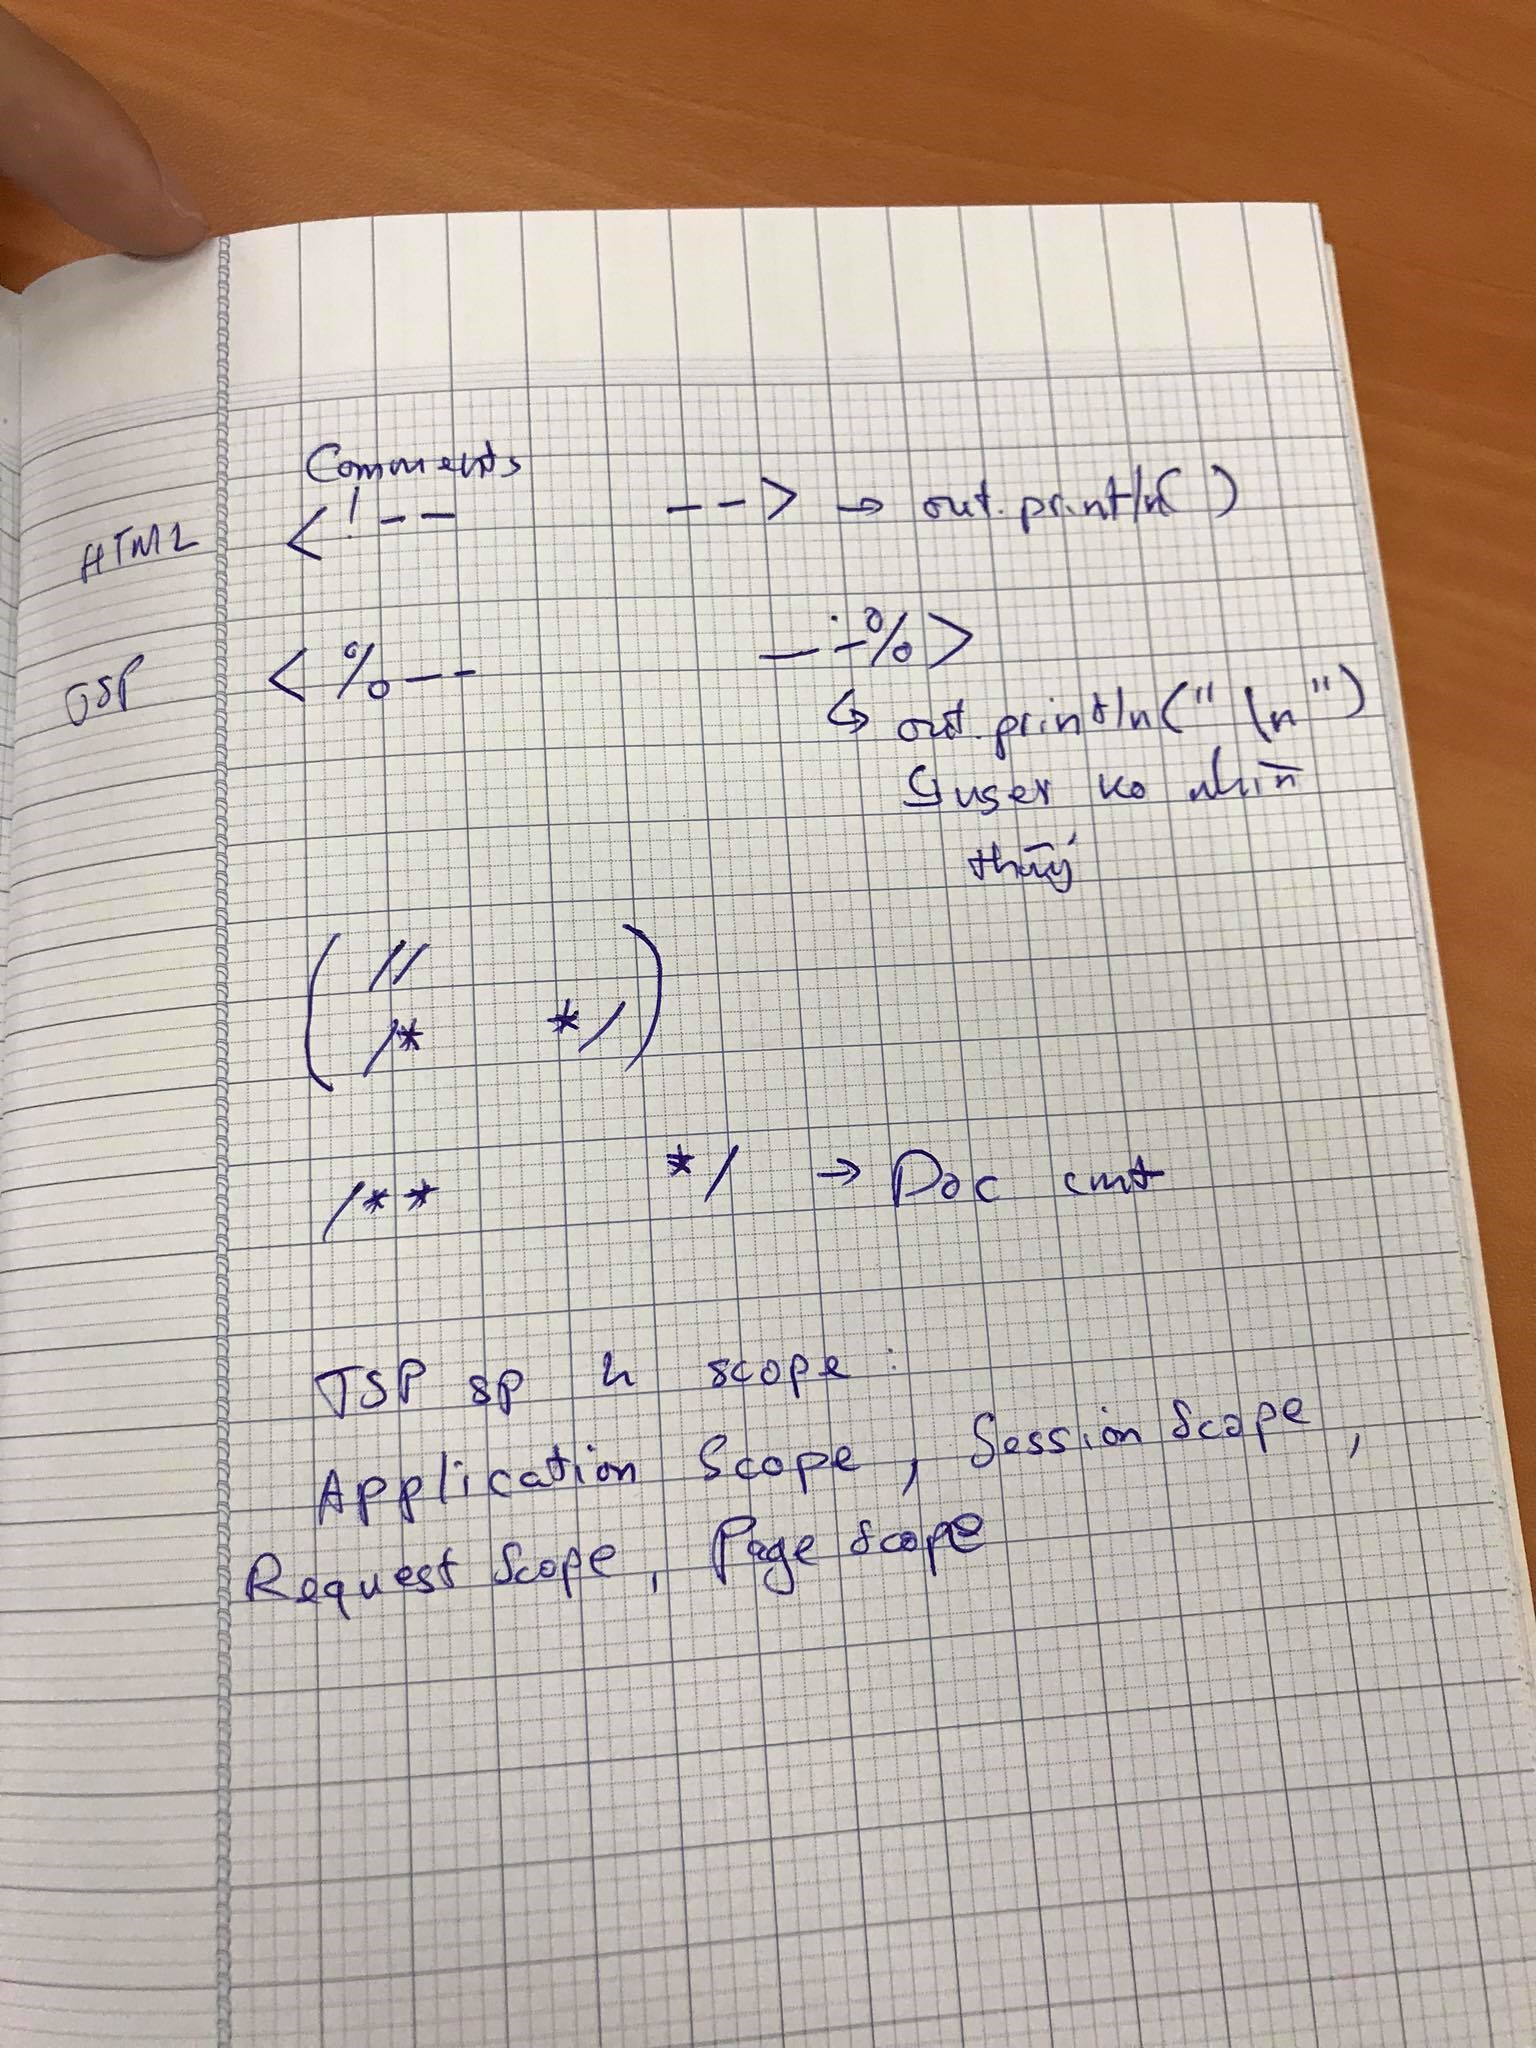 Comments
HTML <!-- --> → out.println( )
JSP <%-- --%>
↳ out.println("\n")
↳ user ko nhìn
thấy
( //
/* */ )
/** */ → Doc cmt
JSP sp 4 scope :
Application Scope , Session Scope ,
Request Scope , Page Scope